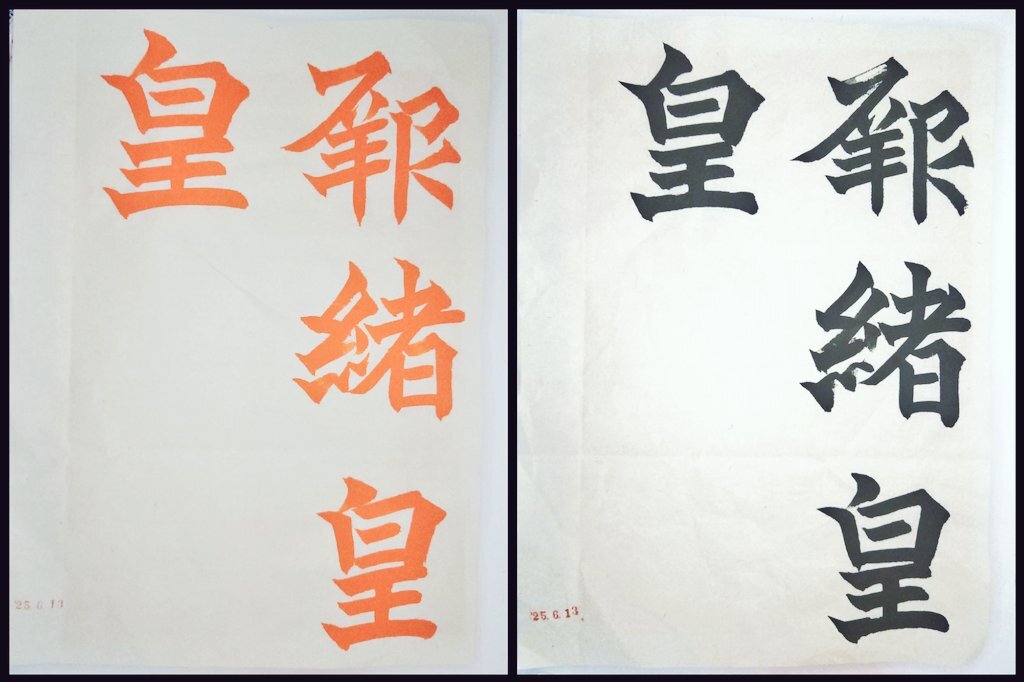 緒皇
皇
'25.6.13
緒皇
皇
'25.6.13.